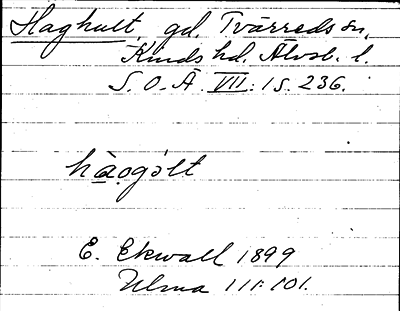 Haghult, gd. Tvärreds sn,
Kinds hd. Älvsb. l.
S. O. Ä. VII:1 S. 236.
hàogölt
E. Ekwall 1899
Ulma 111:101.